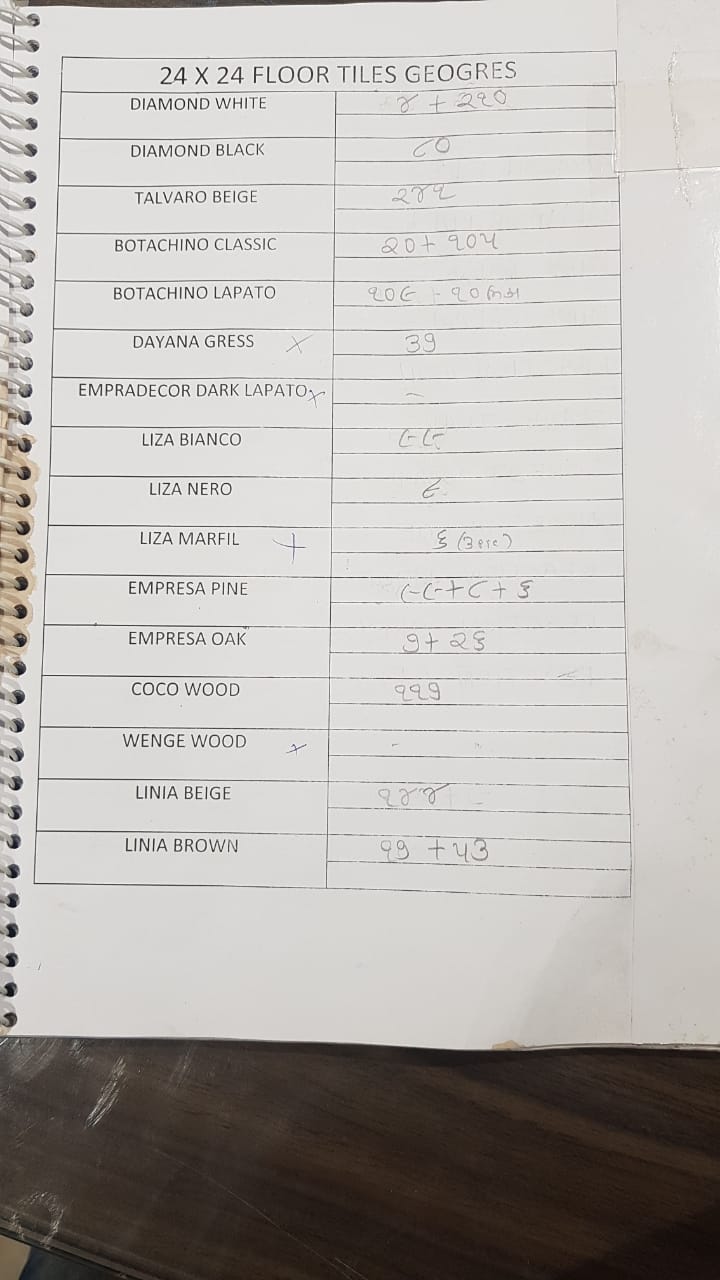 24 X 24 FLOOR TILES GEOGRES
DIAMOND WHITE ૪ + ૨૧૦
DIAMOND BLACK ૮૦
TALVARO BEIGE ૨૪૧
BOTACHINO CLASSIC ૨૦+ ૧૦૫
BOTACHINO LAPATO ૧૦૯ - ૧૦
DAYANA GRESS X ૩૭
EMPRADECOR DARK LAPATO X –
LIZA BIANCO ૯૯
LIZA NERO ૯
LIZA MARFIL + ૬
EMPRESA PINE ૯૯+૮+૬
EMPRESA OAK ૭+ ૨૬
COCO WOOD ૧૧૭
WENGE WOOD x -
LINIA BEIGE ૧૪૪
LINIA BROWN ૧૭ +૫૩